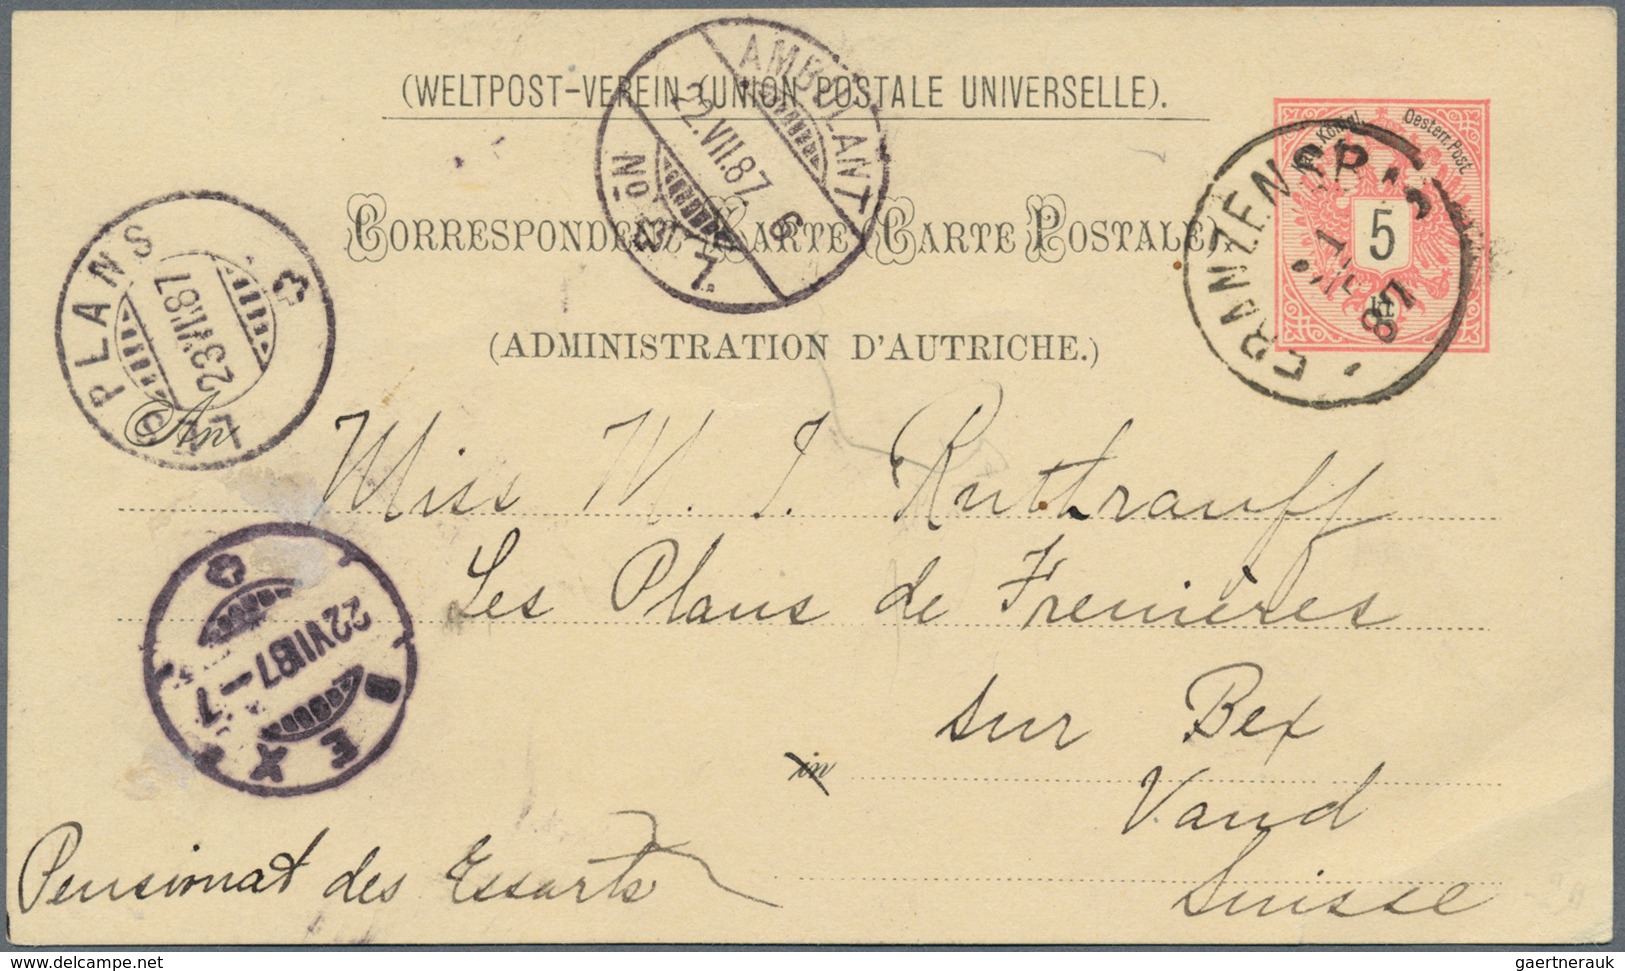 (WELTPOST-VEREIN-(UNION POSTALE UNIVERSELLE).
AMBULANT
22.VII.87. 6
CORRESPONDENZ-KARTE (CARTE POSTALE)
(ADMINISTRATION D'AUTRICHE.)
Oesterr. Post.
5
kr
FRANZENS
1
87
PLANS
23 VII 87
An
Miss M. J. Ruthrauff
Les Plans de Frenières
sur Bex
in
Vaud
Suisse
BEX
22 VII 87-7
Pensionat des Essarts
www.delcampe.net
gaertnerauk